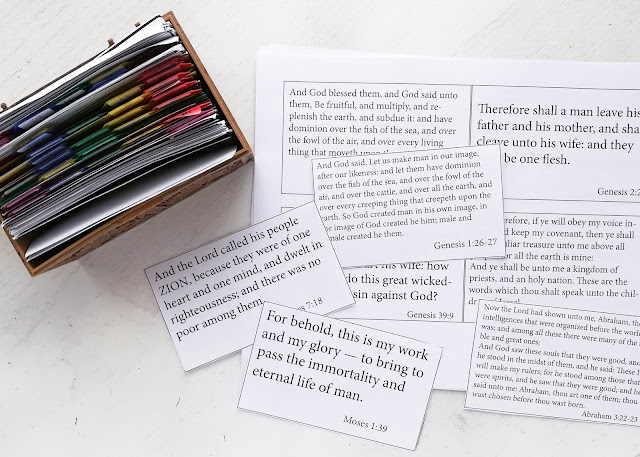 And God blessed them, and God said unto
them, Be fruitful, and multiply, and re-
plenish the earth, and subdue it: and have
dominion over the fish of the sea, and over
the fowl of the air, and over every living
thing that moveth upon the
Therefore shall a man leave his
father and his mother, and sha
cleave unto his wife: and they
be one flesh.
Genesis 2:2
And God said, Let us make man in our image,
after our likeness: and let them have dominion
over the fish of the sea, and over the fowl of the
air, and over the cattle, and over all the earth, and
over every creeping thing that creepeth upon the
earth. So God created man in his own image, in
the image of God created he him; male and
male created he them.
Genesis 1:26-27
refore, if ye will obey my voice in-
d keep my covenant, then ye shall
uliar treasure unto me above all
or all the earth is mine:
And ye shall be unto me a kingdom of
priests, and an holy nation. These are the
words which thou shalt speak unto the chil-
his wife: how
do this great wicked-
sin against God?
Genesis 39:9
And the Lord called his people
ZION, because they were of one
heart and one mind, and dwelt in
righteousness; and there was no
poor among them.
7:18
For behold, this is my work
and my glory — to bring to
pass the immortality and
eternal life of man.
Moses 1:39
Now the Lord had shown unto me, Abraham, the
intelligences that were organized before the world
was; and among all these there were many of the
ble and great ones;
And God saw these souls that they were good, and
he stood in the midst of them, and he said: These I
will make my rulers; for he stood among those tha
were spirits, and he saw that they were good; and he
said unto me: Abraham, thou art one of them; thou
wast chosen before thou wast born.
Abraham 3:22-23